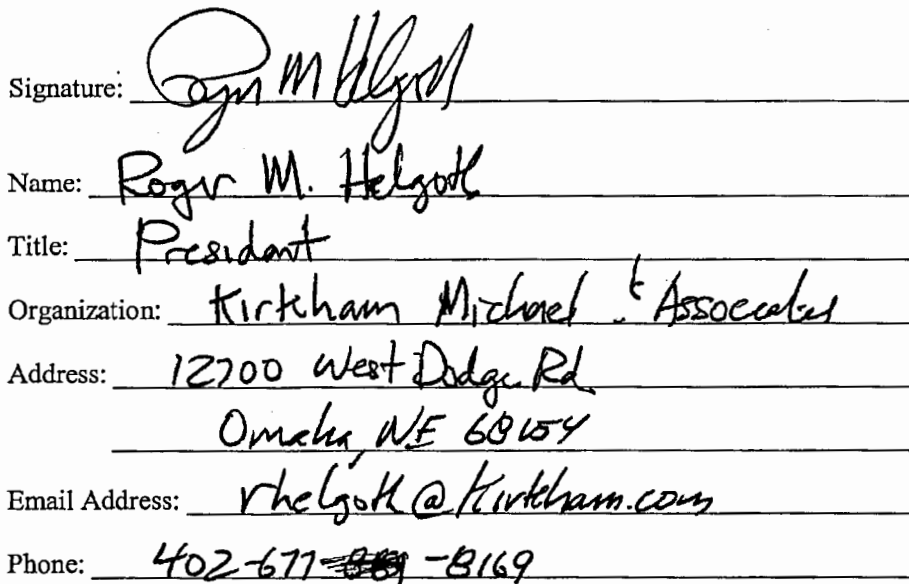 Signature: Roger M Helgoth
Name: Roger M. Helgoth
Title: President
Organization: Kirkham Michael & Associates
Address: 12700 West Dodge Rd
Omaha, NE 68154
Email Address: rhelgoth@kirkham.com
Phone: 402-677-8169